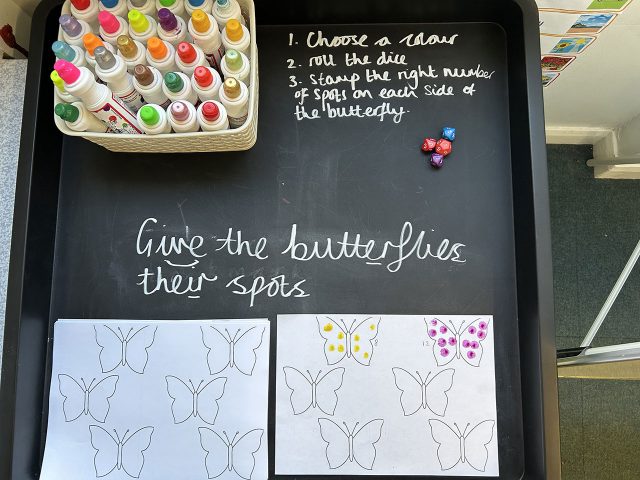 1. Choose a colour
2. roll the dice
3. Stamp the right number
of spots on each side of
the butterfly.
Give the butterflies
their spots
12